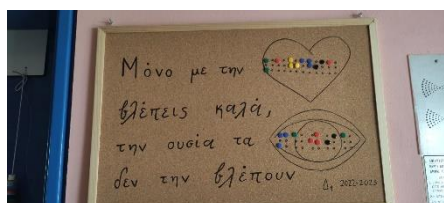 Μόνο με την
βλέπεις καλά,
την ουσία τα
δεν την βλέπουν
Δ, 2022-2023